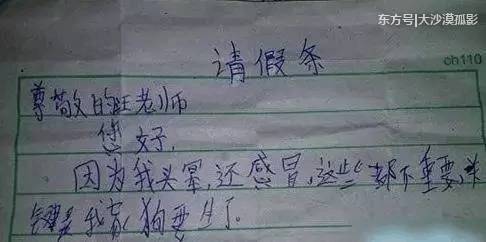 东方号|大沙漠孤影
请假条
ch110
尊敬的旺老师
您好,
因为我头晕,还感冒,这些都不重要,关
键是我家狗要生了。